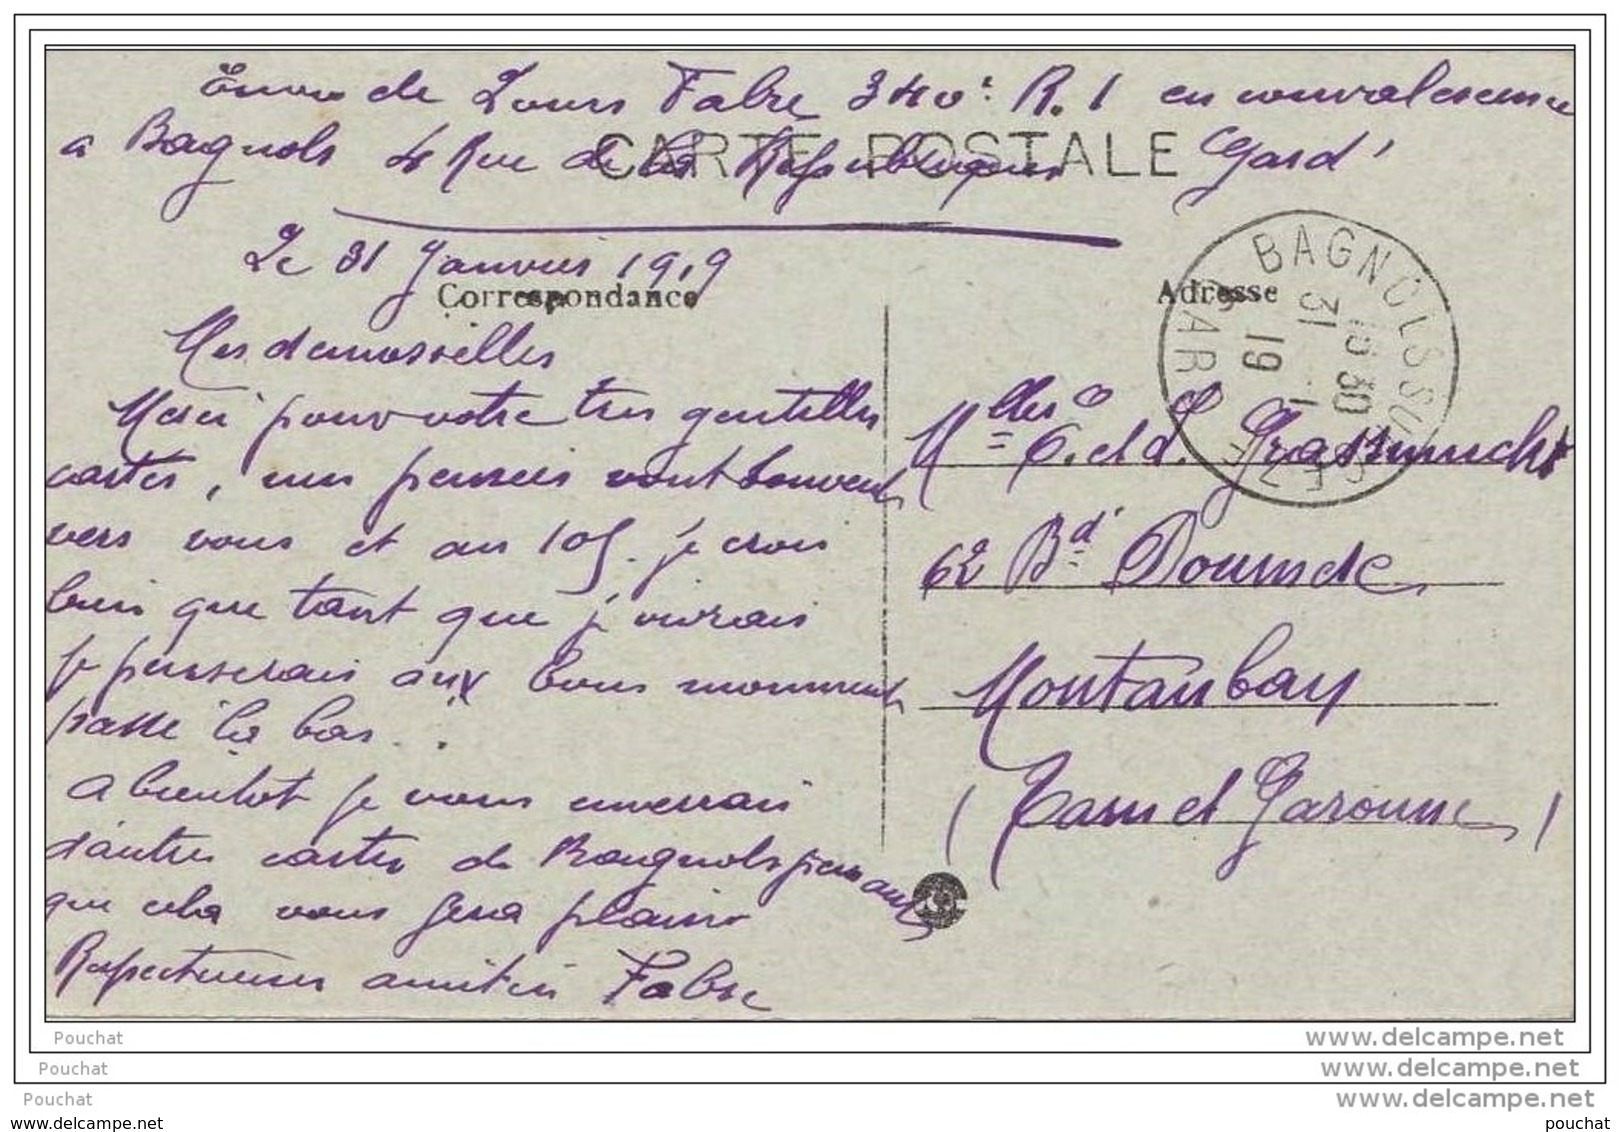 Envoi de Louis Fabre 340e R. I en convalescence
a Bagnols 4 Rue de la Republique Gard
CARTE POSTALE
Le 31 Janvier 1919
Correspondance
Mesdemoiselles
Merci pour votre tres gentilles
cartes, mes pensées vont souvent
vers vous et au 10
je crois
bien que tant que je vivrais
je penserais aux bons moments
passé la bas...
a bientot je vous enverrais
d'autres cartes de Bagnols pensant
que cela vous fera plaisir
Respectueuses amitiés Fabre
Adresse
BAGNOLS SUR CEZE
GARD
15 30
31 - 1
19
Mlles C. et J.
62 Bd Doumerc
Montauban
(Tarn et Garonne)
Pouchat
www.delcampe.net
Pouchat
www.delcampe.net
Pouchat
www.delcampe.net
www.delcampe.net
pouchat